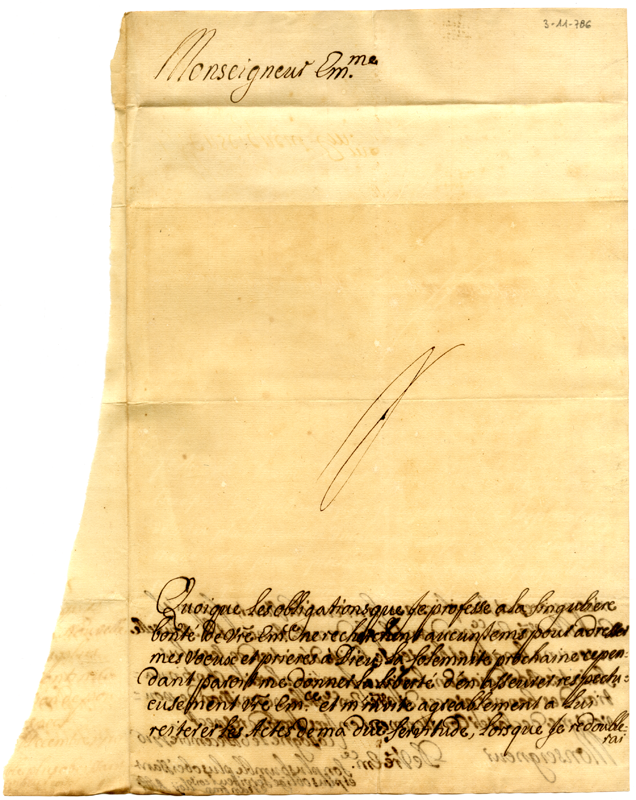 3-11-706
Monseigneur Em.me
Quoique les obligations que je professe a la singuliere
bonté de Vre Em.ce ne recherchent aucun tems pour adresser
mes voeux et prieres a Dieu, la solemnité prochaine cepen-
dant parent me donner la liberté d'en asseurer respectu-
eusement Vre Em.ce et m'invite agreablement a Luy
reiterer les Actes de ma due servitude, lorsque je redouble-
rai
Monseigneur
De Vre Em.ce